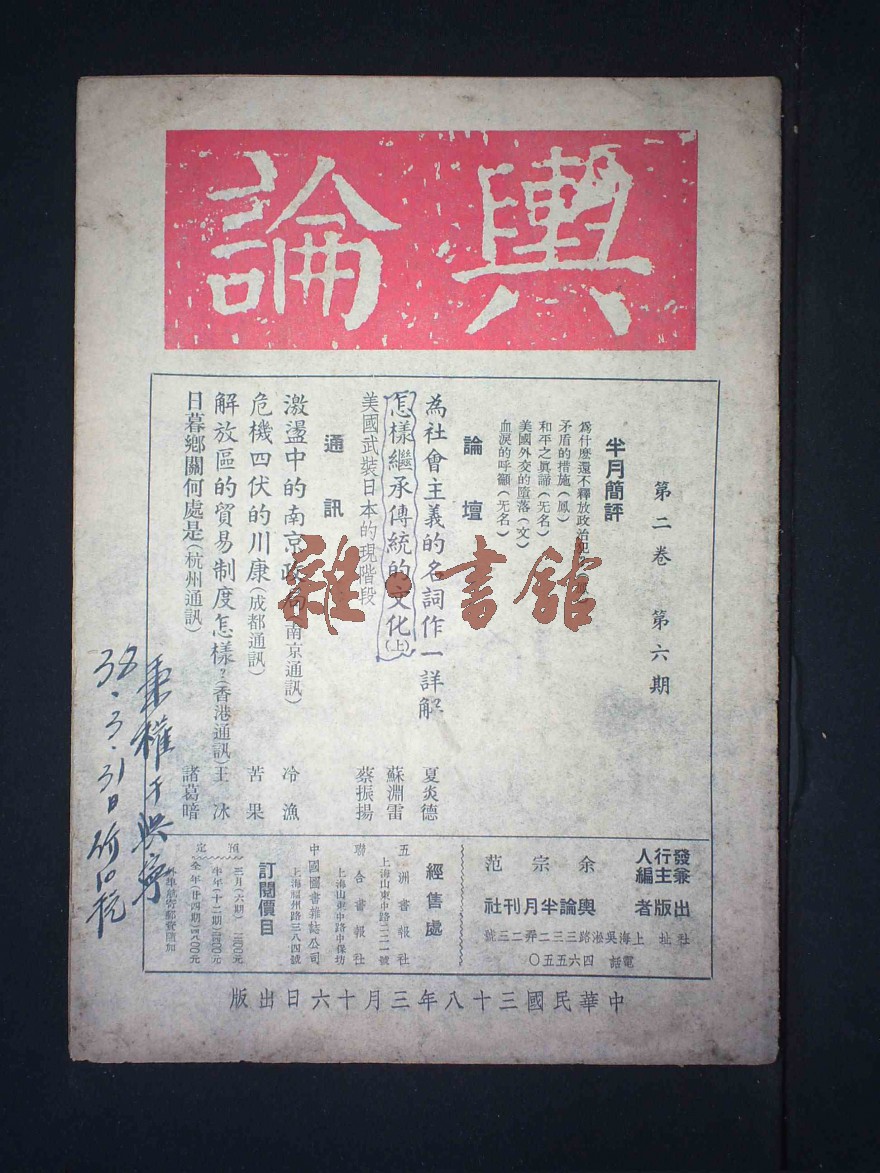 輿論
第二卷　第六期
半月簡評
爲什麽還不釋放政治犯
矛盾的措施(鳳)
和平之真諦(旡名)
美國外交的墮落(文)
血淚的呼籲(旡名)
論壇
為社會主義的名詞作一詳解　夏炎德
怎樣繼承傳統的文化(上)　蘇淵雷
美國武裝日本的現階段　蔡振揚
通訊
激盪中的南京政局(南京通訊)　冷漁
危機四伏的川康(成都通訊)　苦果
解放區的貿易制度怎樣?(香港通訊)　王冰
日暮鄉關何處是(杭州通訊)　諸葛暗
發行人兼主編　余宗范
出版者　輿論半月刊社
社址　上海吳淞路三三二弄二三號
電話　四六五五〇
經售處
五洲書報社
上海山東中路二二一號
聯合書報社
上海山東中路中保坊
中國圖書雜誌公司
上海福州路三八四號
訂閱價目
預定
三月(六期)
半年(十二期)
全年(廿四期)
外埠航寄郵費隨加
中華民國三十八年三月十六日出版
雜·書館
秉權于興寧
38.3.31日